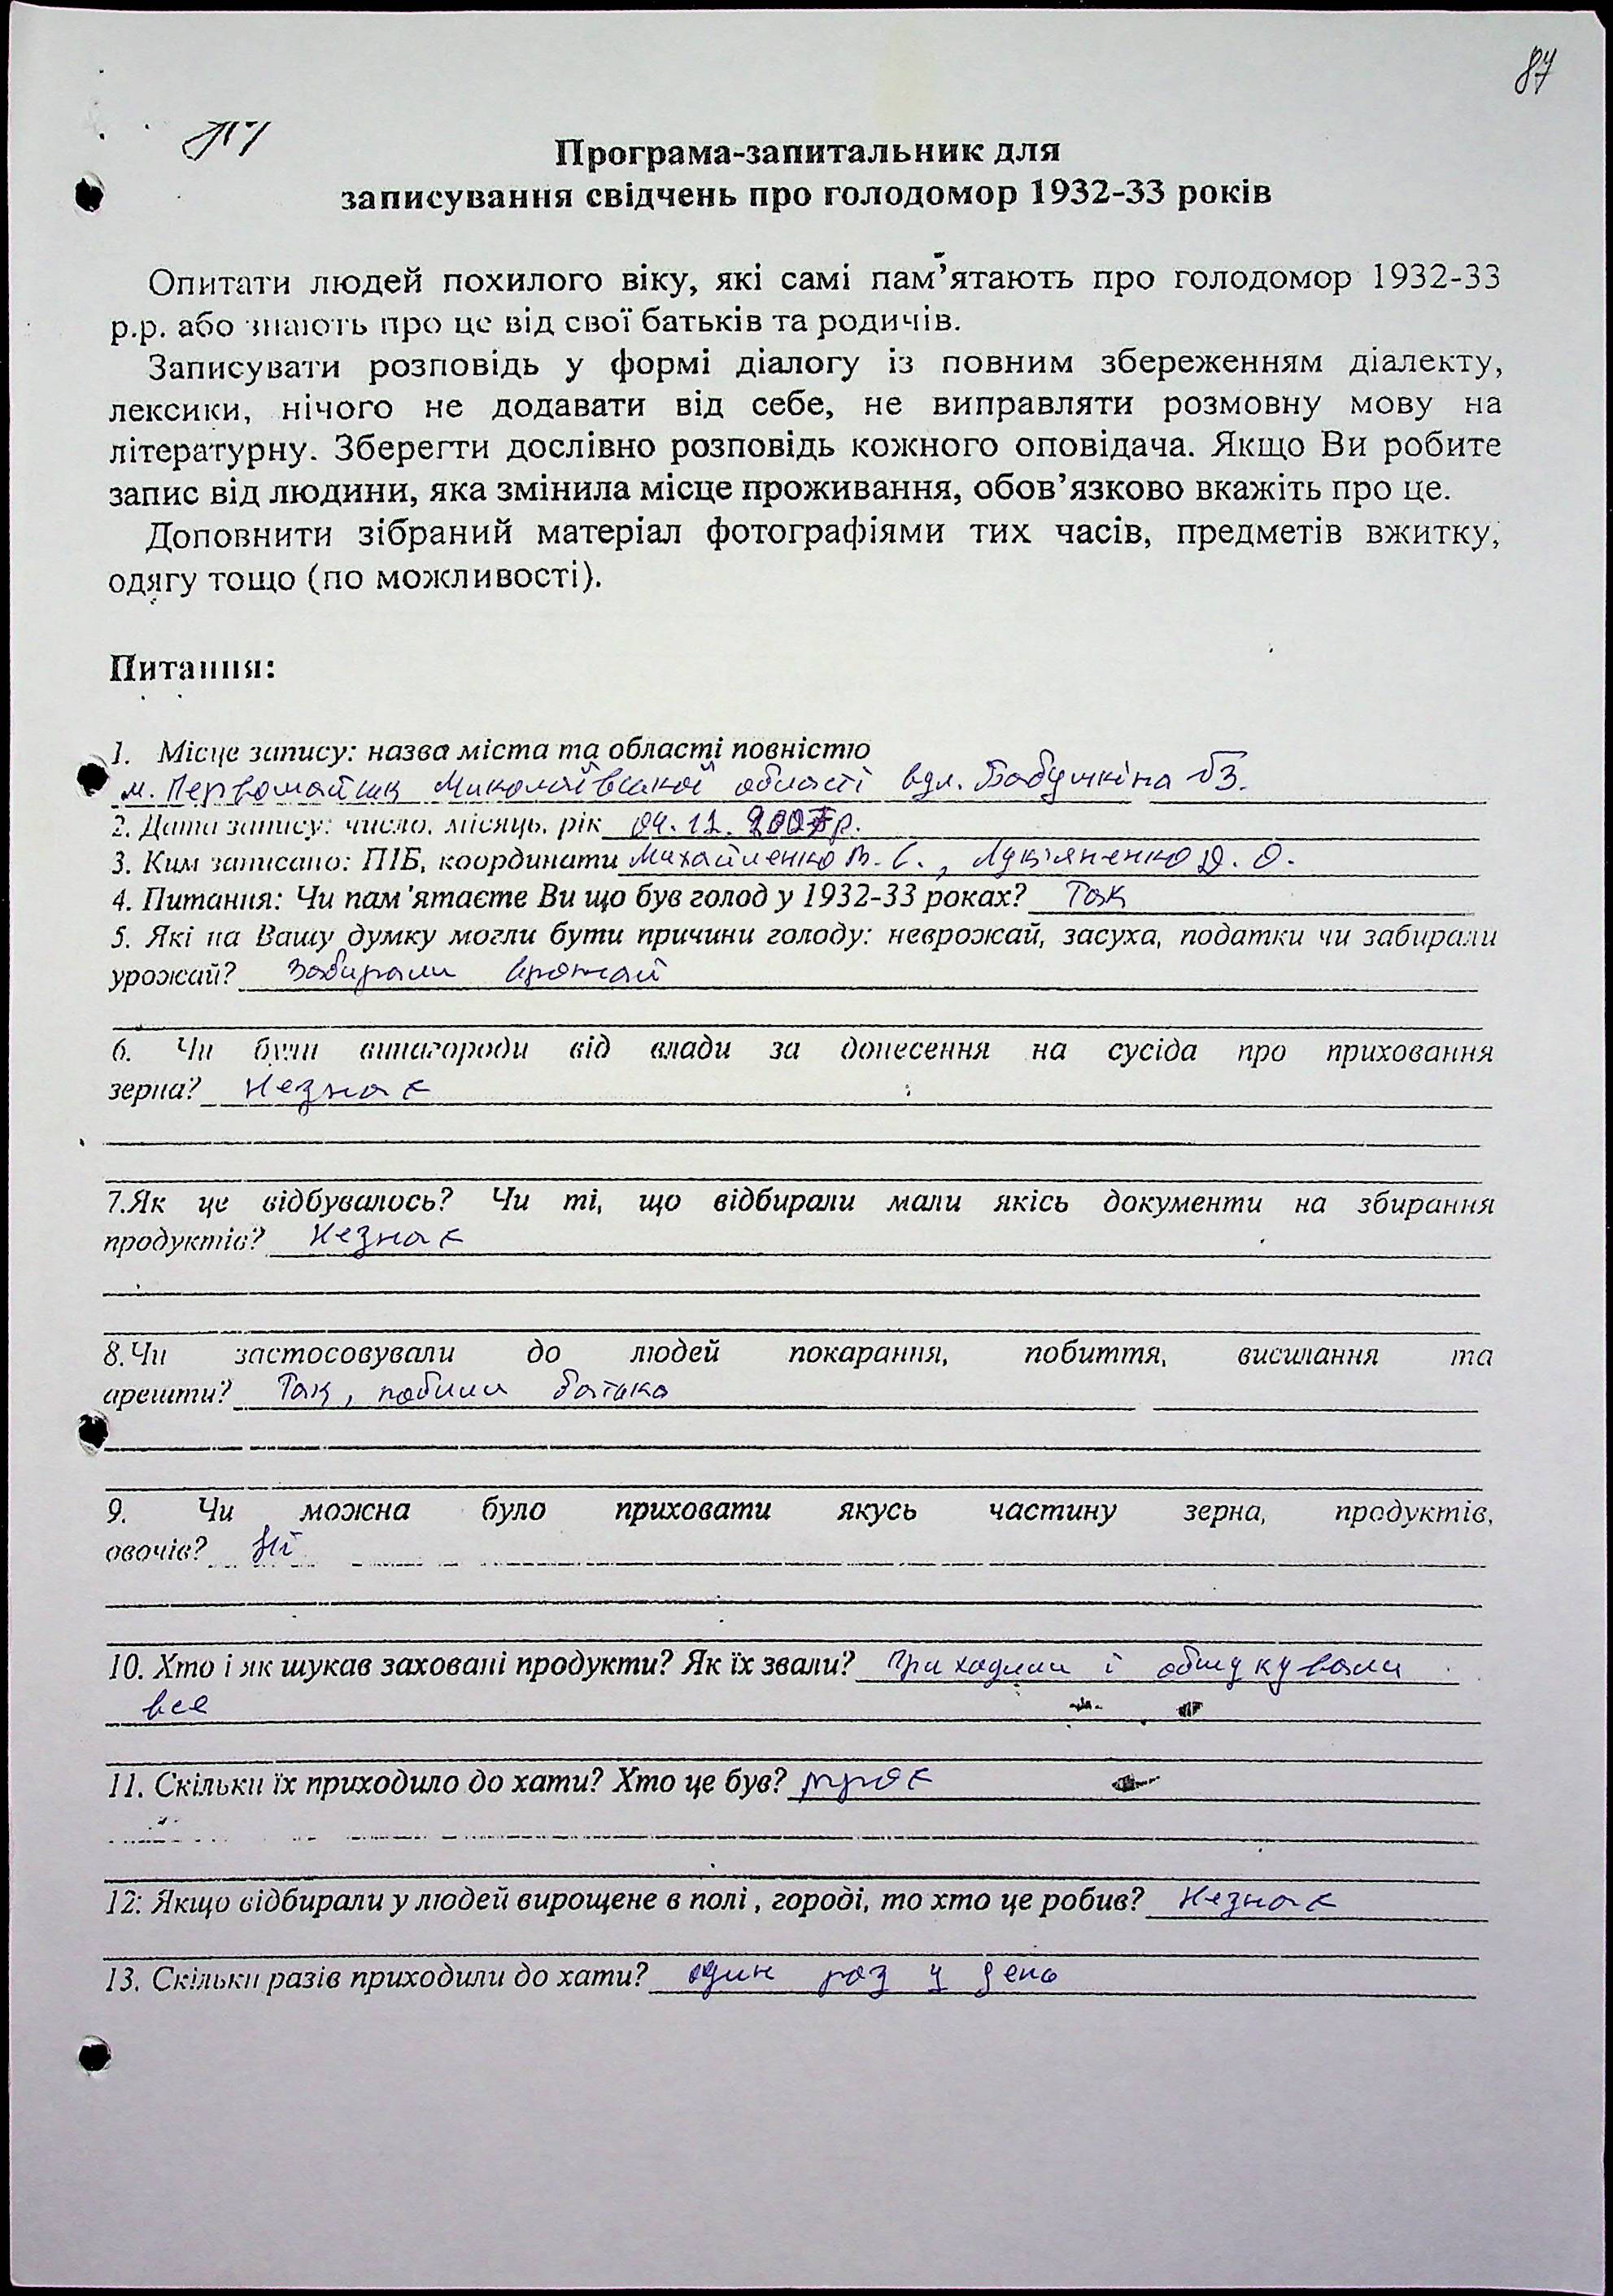 87
Програма-запитальник для
записування свідчень про голодомор 1932-33 років
Опитати людей похилого віку, які самі пам’ятають про голодомор 1932-33
р.р. або знають про це від свої батьків та родичів.
Записувати розповідь у формі діалогу із повним збереженням діалекту,
лексики, нічого не додавати від себе, не виправляти розмовну мову на
літературну. Зберегти дослівно розповідь кожного оповідача. Якщо Ви робите
запис від людини, яка змінила місце проживання, обов’язково вкажіть про це.
Доповнити зібраний матеріал фотографіями тих часів, предметів вжитку,
одягу тощо (по можливості).
Питання:
1. Місце запису: назва міста та області повністю
м. Первомайськ Миколаївської області вул. Бабушкіна
2. Дата запису: число, місяць, рік
3. Ким записано: ПІБ, координати Михайленко В. С., Лук'яненко Д. О.
4. Питання: Чи пам’ятаєте Ви що був голод у 1932-33 роках? Так
5. Які на Вашу думку могли бути причини голоду: неврожай, засуха, податки чи забирали
урожай? Забирали врожай
6. Чи були винагороди від влади за донесення на сусіда про приховання
зерна? Незнає
7.Як це відбувалось? Чи ті, що відбирали мали якісь документи на збирання
продуктів? Незнає
8.Чи застосовували до людей покарання, побиття, висилання та
арешти? Так, побили батька
9. Чи можна було приховати якусь частину зерна, продуктів,
овочів? Ні
10. Хто і як шукав заховані продукти? Як їх звали? Приходили і обшукували
все
11. Скільки їх приходило до хати? Хто це був? троє
12. Якщо відбирали у людей вирощене в полі , городі, то хто це робив? Незнає
13. Скільки разів приходили до хати? один раз у день